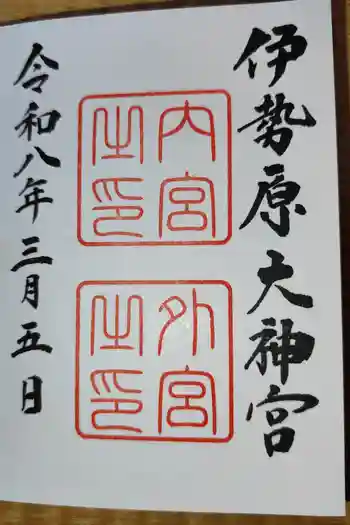 伊勢原大神宮
内宮之印
外宮之印
令和八年三月五日